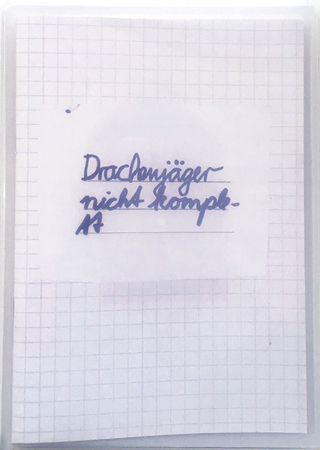 Drachenjäger
nicht komple-
tt